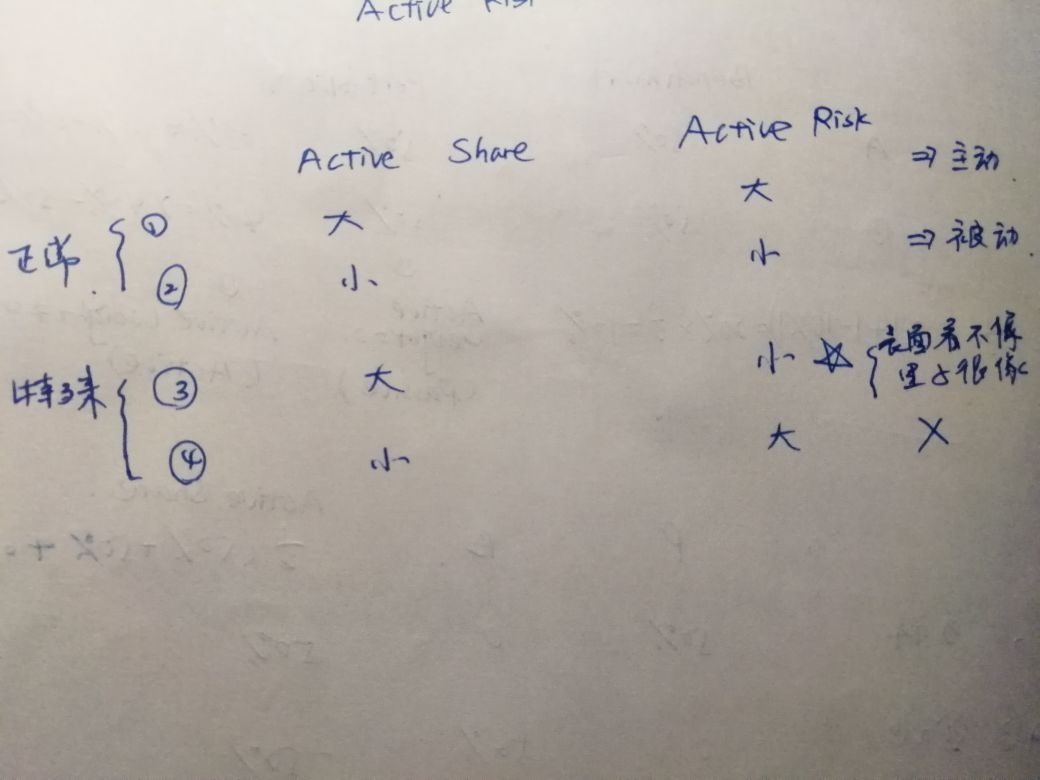 Active Risk
Active Share Active Risk
正常 { ① 大 大 ⇒ 主动
② 小 小 ⇒ 被动
特殊 { ③ 大 小 ☆ { 表面看不像
里子很像
④ 小 大 ×